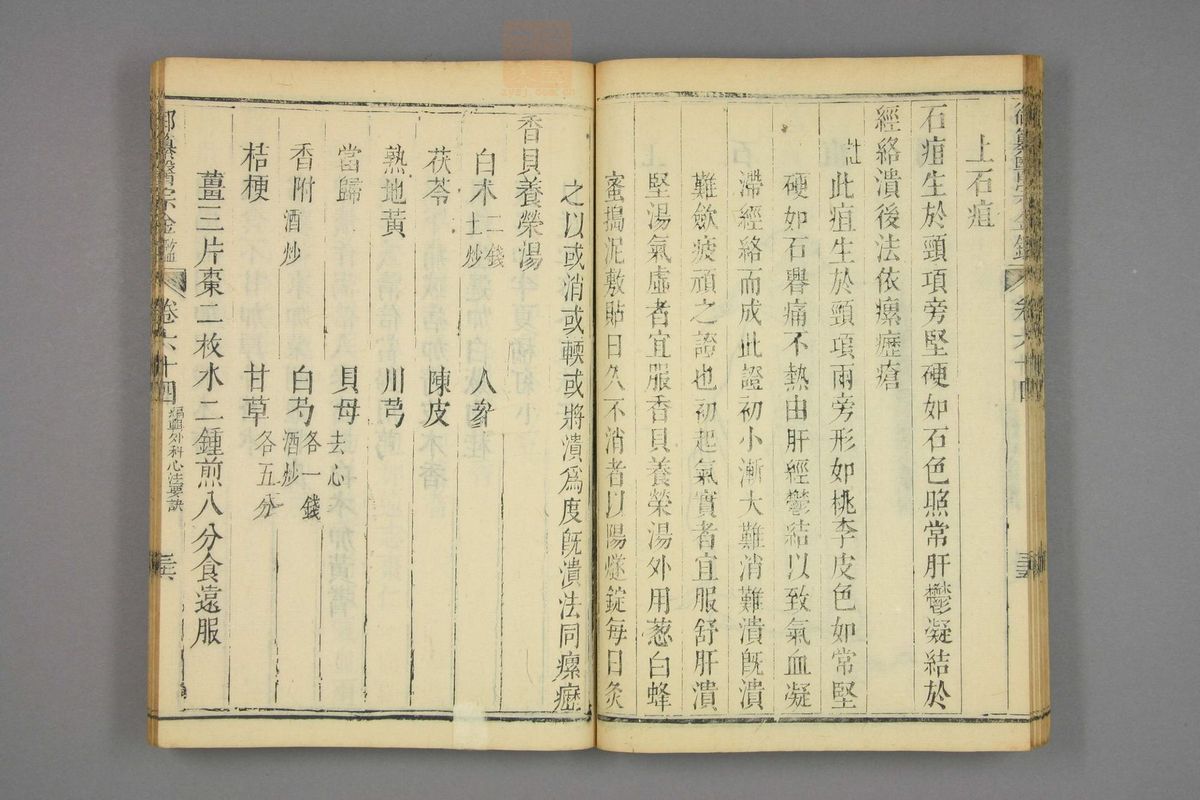 御纂醫宗金鑑 卷六十四 三五
上石疽
石疽生於頸項旁堅硬如石色照常肝鬱凝結於
經絡潰後法依瘰癧瘡
註此疽生於頸項兩旁形如桃李皮色如常堅
硬如石臖痛不熱由肝經鬱結以致氣血凝
滯經絡而成此證初小漸大難消難潰旣潰
難歛疲頑之證也初起氣實者宜服舒肝潰
堅湯氣虛者宜服香貝養榮湯外用葱白蜂
蜜搗泥敷貼日久不消者以陽燧錠每日灸
之以或消或輭或將潰爲度旣潰法同瘰癧
香貝養榮湯
白朮二錢土炒 人參
茯苓 陳皮
熟地黃 川芎
當歸 貝母去心
香附酒炒 白芍各一錢酒炒
桔梗 甘草各五分
薑三片棗二枚水二鍾煎八分食遠服
御纂醫宗金鑑 卷六十四 編輯外科心法要訣 三六